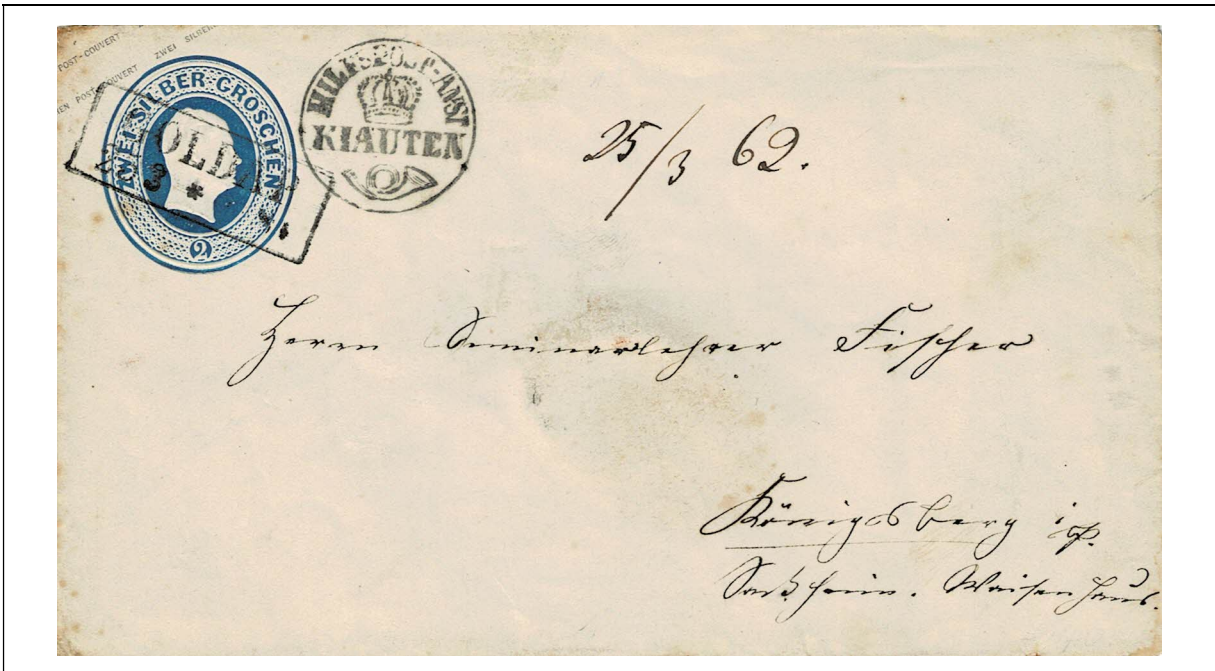 POST-COUVERT
POST-COUVERT ZWEI SILBER
ZWEI SILBER-GROSCHEN
2
GOLDAP
3 *
HILFSPOST-ANST
KIAUTEN
25/3 62.
Herrn Seminarlehrer Fischer
Königsberg i/P.
Waisenhaus.